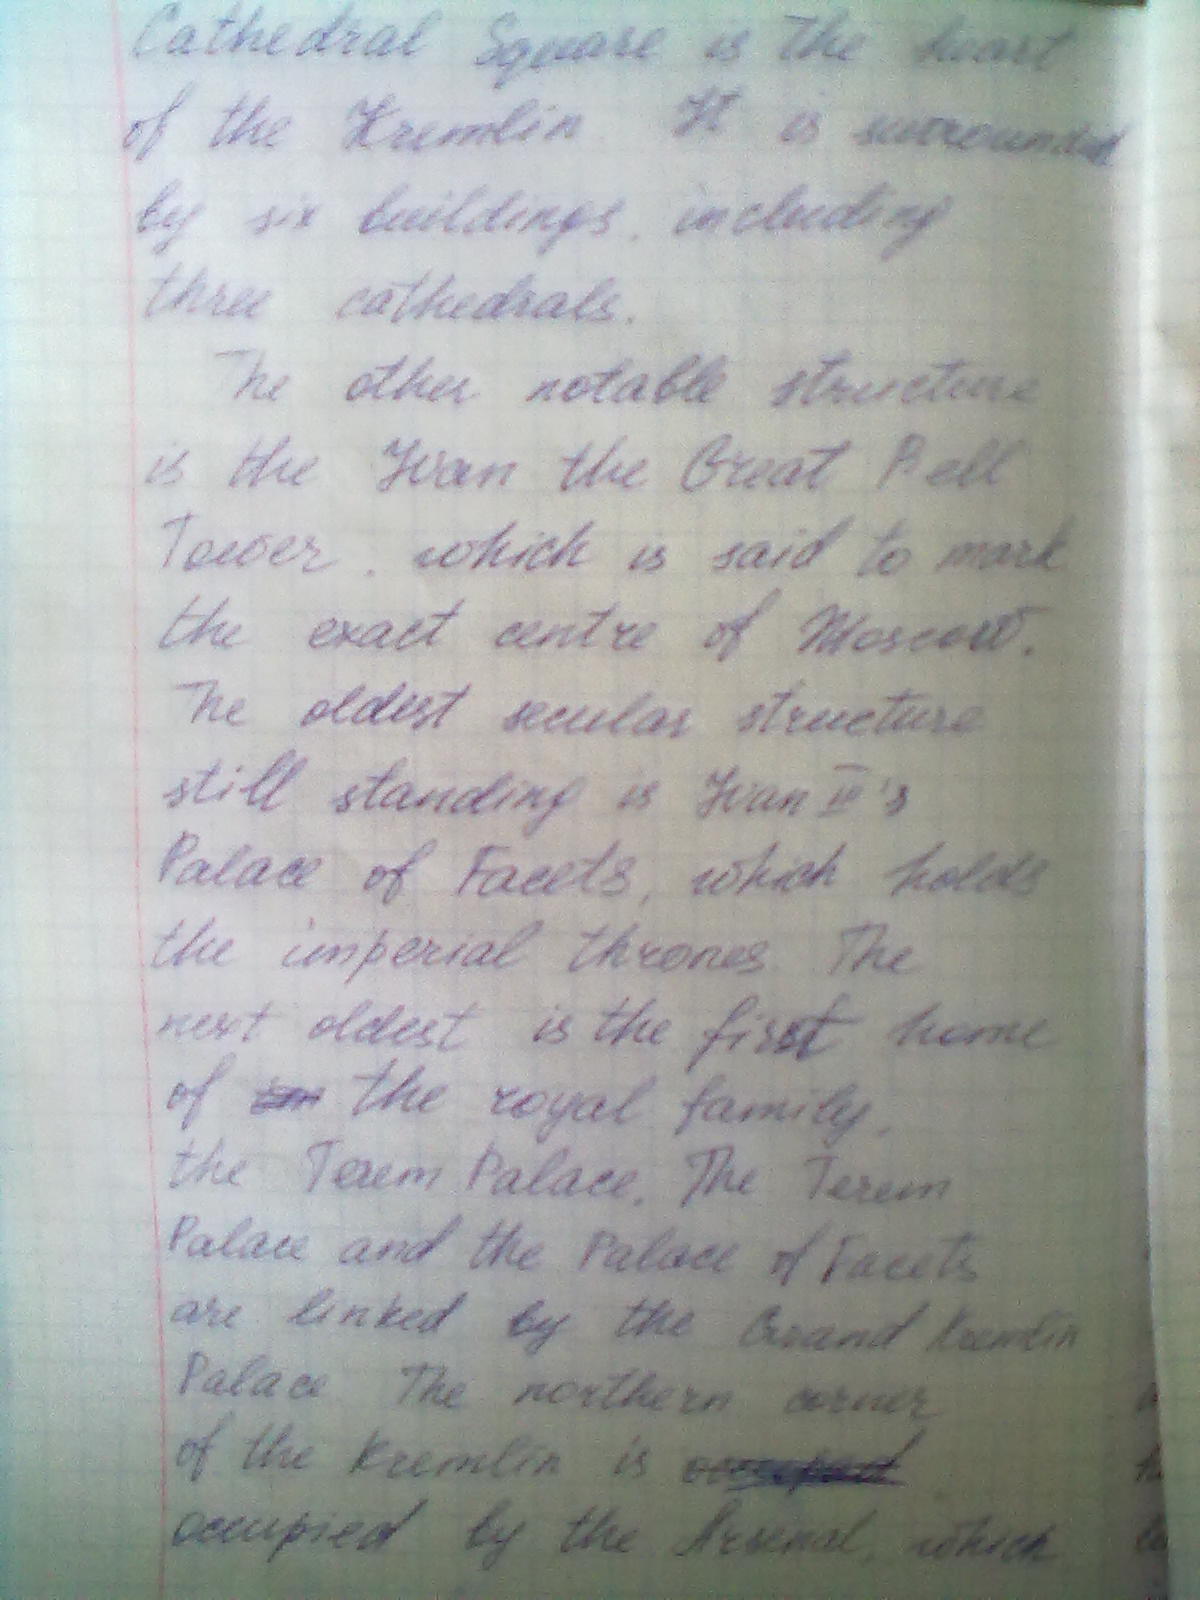 Cathedral Square is the heart
of the Kremlin. It is surrounded
by six buildings, including
three cathedrals.
The other notable structure
is the Ivan the Great Bell
Tower, which is said to mark
the exact centre of Moscow.
The oldest secular structure
still standing is Ivan III's
Palace of Facets, which holds
the imperial thrones. The
next oldest is the first home
of the royal family,
the Terem Palace. The Terem
Palace and the Palace of Facets
are linked by the Grand Kremlin
Palace The northern corner
of the Kremlin is
occupied by the Arsenal, which